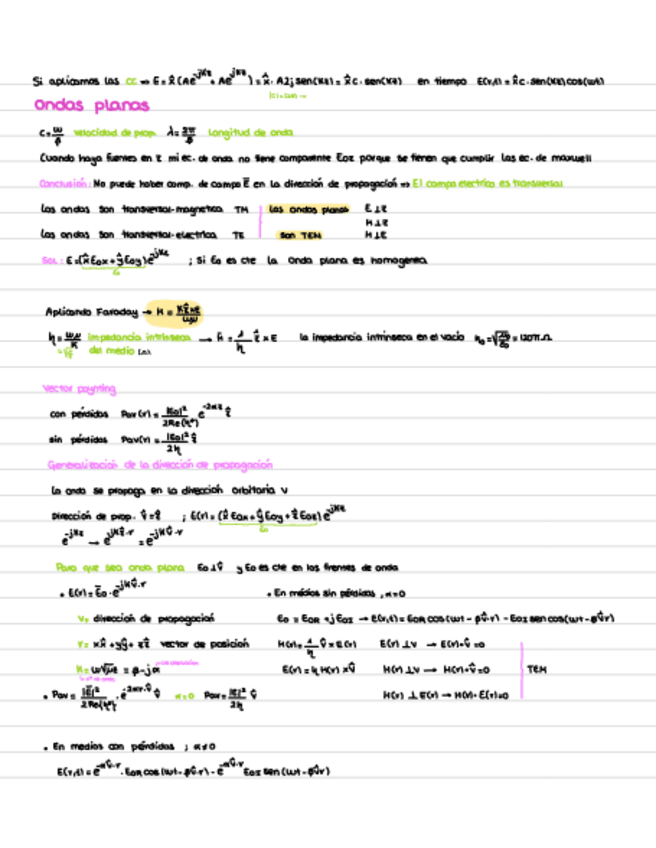 Si aplicamos las CC => E = x̂(Ae^-jkz + Ae^jkz) = x̂ · A2j sen(kz) = x̂ C · sen(kz) en tiempo E(r,t) = x̂ C · sen(kz) cos(ωt)
Ondas planas
c = ω/β velocidad de prop. λ = 2π/β longitud de onda
Cuando haya fuentes en z mi ec. de onda no tiene componente Eoz porque se tienen que cumplir las ec. de maxwell
Conclusión: No puede haber comp. de campo E en la dirección de propagación => El campo electrico es transversal
Las ondas son transversal-magnetica TM Las ondas planas E ⊥ z
H ⊥ z
Las ondas son transversal-electrica TE son TEM H ⊥ E
Sol: E = (x̂ Eox + ŷ Eoy) e^-jkz ; Si Eo es cte la onda plana es homogenea
Eo
Aplicando Faraday → H = kẑ×E/ωμ
η = ωμ/k impedancia intrinseca → H = 1/η ẑ × E la impedancia intrinseca en el vacio η₀ = √(μ₀/ε₀) = 120π Ω
del medio (Ω)
Vector poynting
con pérdidas Pav(r) = |Eo|²/2Re(η*) e^-2αz ẑ
sin pérdidas Pav(r) = |Eo|²/2η ẑ
Generalización de la dirección de propagación
La onda se propaga en la dirección arbitraria v
Dirección de prop. v̂ = ẑ ; E(r) = (x̂ Eox + ŷ Eoy + ẑ Eoz) e^-jkz
Eo
e^-jkz → e^-jkẑ·r = e^-jkv̂·r
Para que sea onda plana Eo ⊥ v̂ y Eo es cte en los frentes de onda
• E(r) = Eo · e^-jkv̂·r • En medios sin pérdidas , α=0
V = dirección de propagación Eo = EoR + jEoI → E(r,t) = EoR cos(ωt - βv̂·r) - EoI sen(ωt - βv̂r)
r = xx̂ + yŷ + zẑ vector de posición H(r) = 1/η v̂ × E(r) E(r) ⊥ v → E(r)·v̂ = 0
K = ω√με = β - jα E(r) = η H(r) × v̂ H(r) ⊥ v → H(r)·v̂ = 0 TEM
• Pav = |E|²/2Re(η*) · e^-2αr·v̂ v̂ α=0 Pav = |E|²/2η v̂ H(r) ⊥ E(r) → H(r)·E(r) = 0
• En medios con pérdidas ; α≠0
E(r,t) = e^-αv̂·r · EoR cos(ωt - βv̂·r) - e^-αv̂·r EoI sen(ωt - βv̂r)